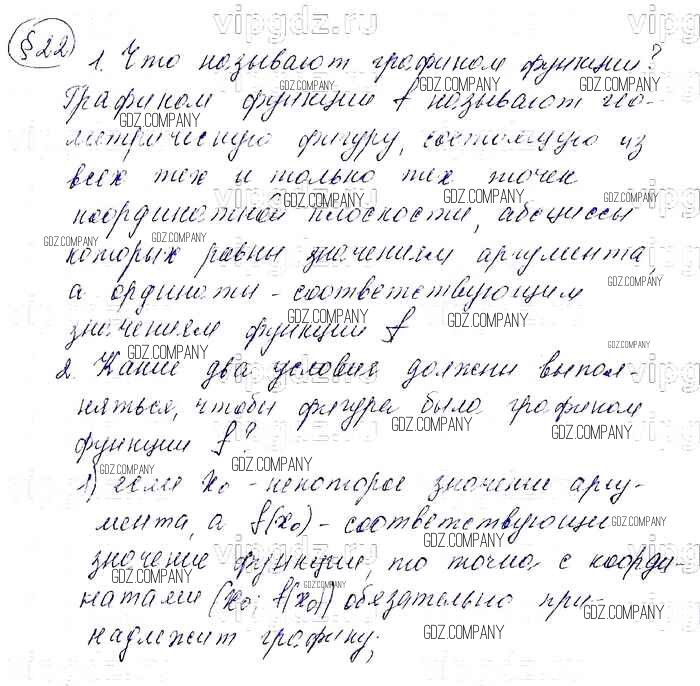 §22
1. Что называют графиком функции?
Графиком функции f называют гео-
метрическую фигуру, состоящую из
всех тех и только тех точек
координатной плоскости, абсциссы
которых равны значениям аргумента,
а ординаты - соответствующим
значениям функции f
2. Какие два условия должны выпол-
няться, чтобы фигура была графиком
функции f?
1) если x₀ - некоторое значение аргу-
мента, а f(x₀) - соответствующее
значение функции, то точка с коорди-
натами (x₀; f(x₀)) обязательно при-
надлежит графику;
vipgdz.ru
GDZ.COMPANY